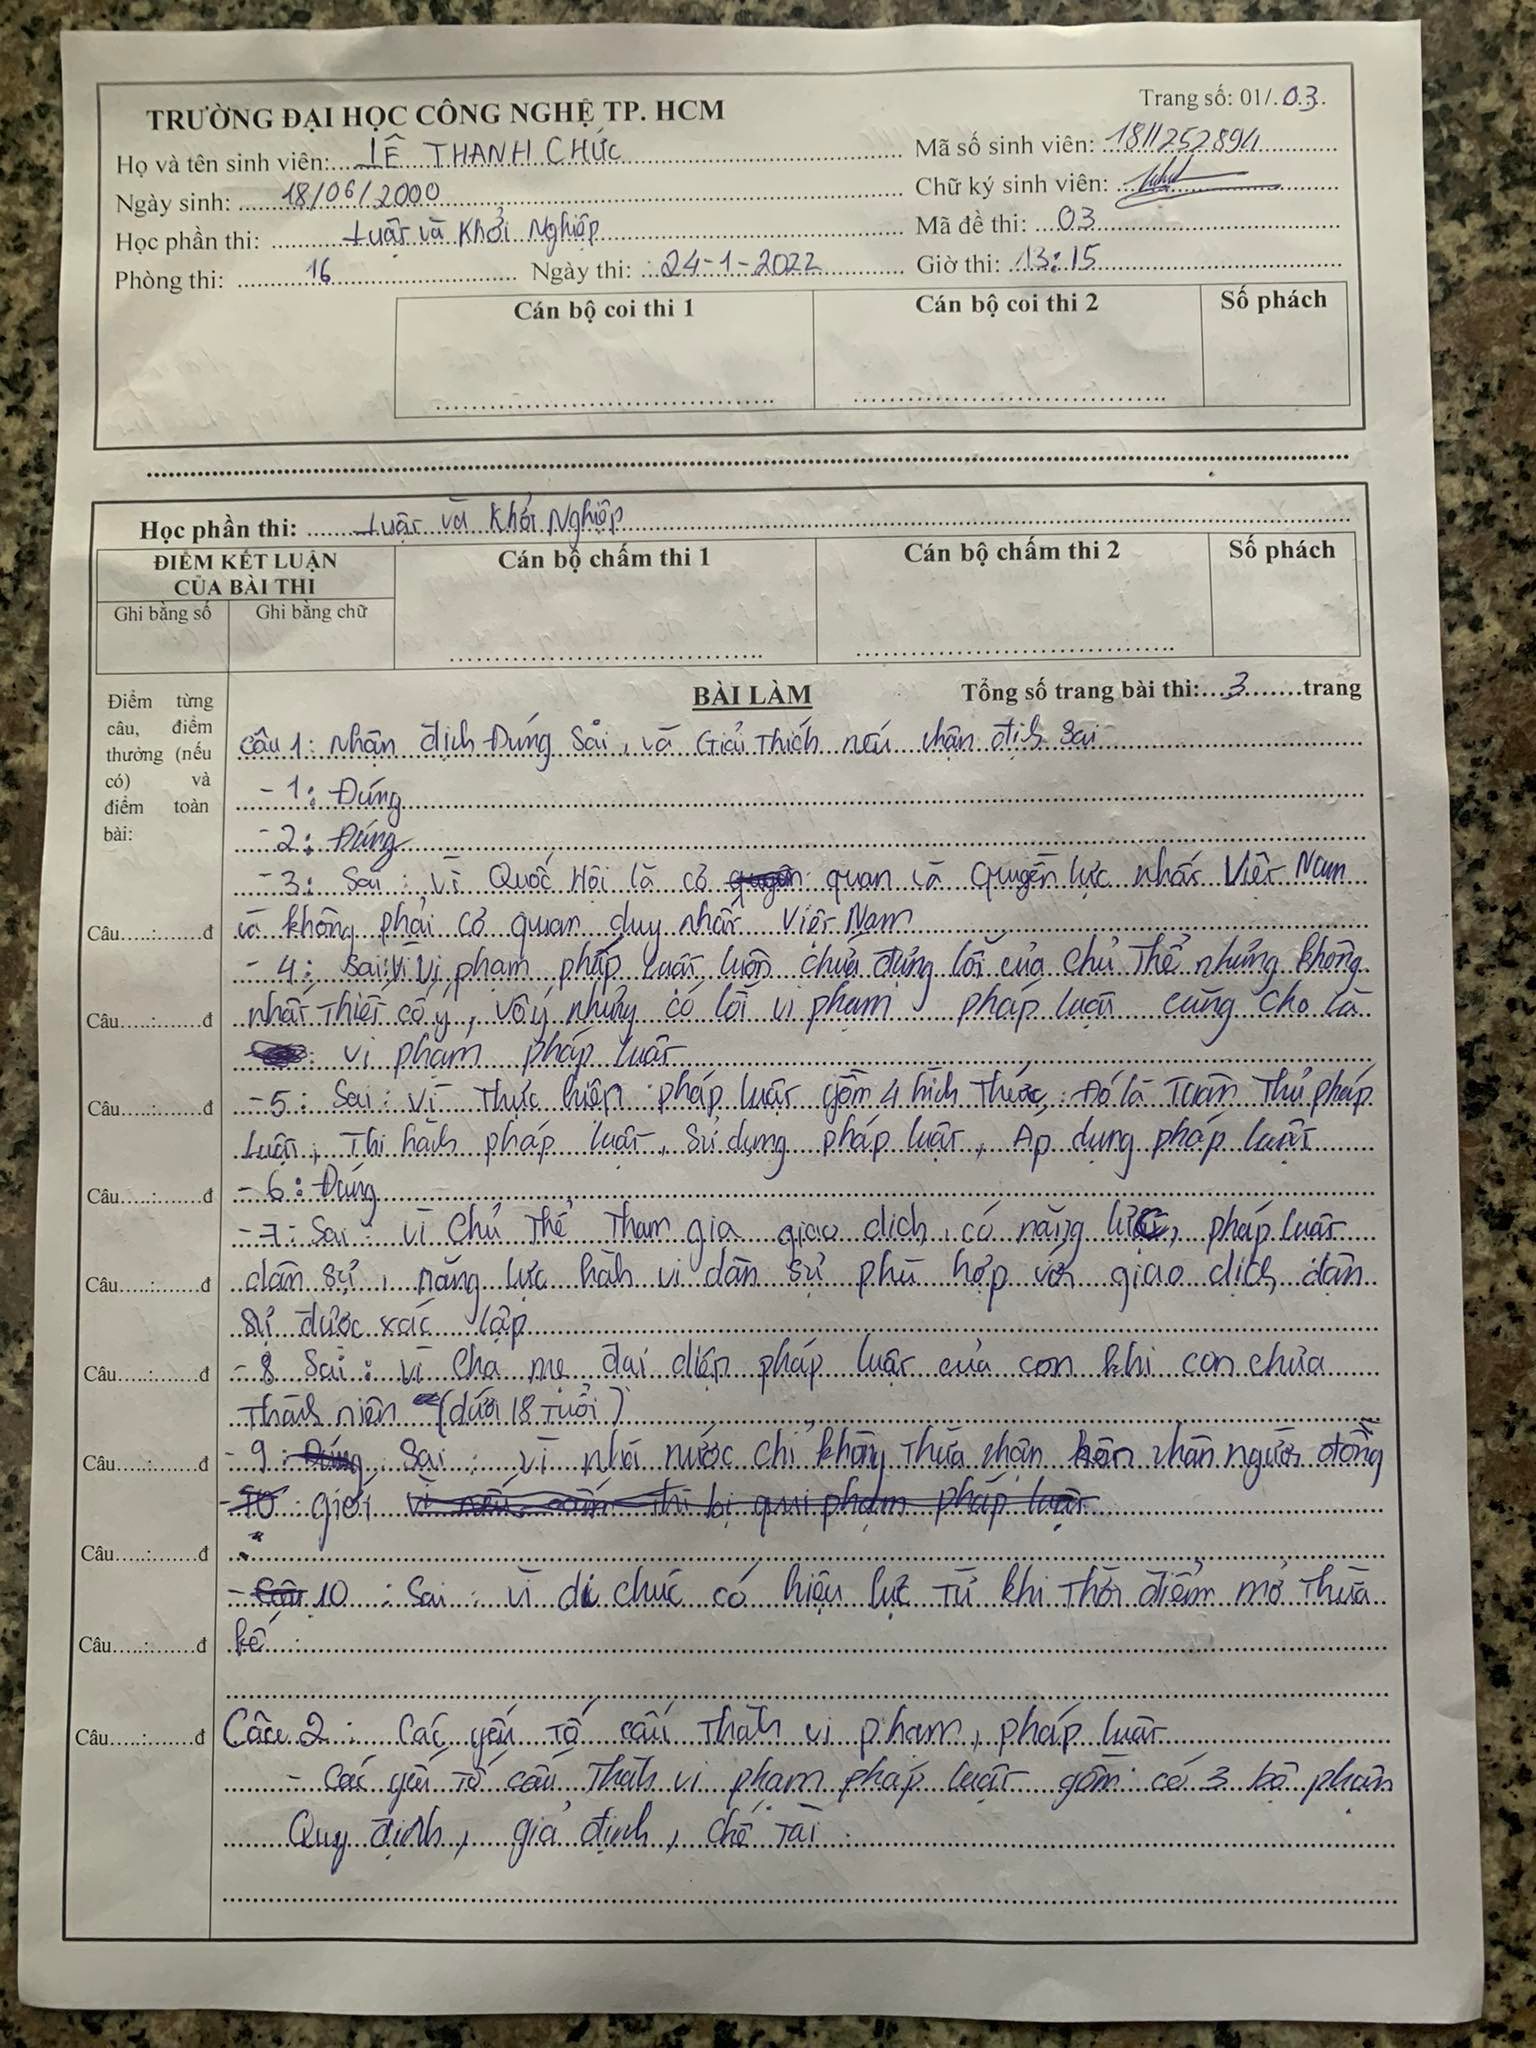 TRƯỜNG ĐẠI HỌC CÔNG NGHỆ TP. HCM
Trang số: 01/.03.
Họ và tên sinh viên: LÊ THANH CHỨC
Mã số sinh viên: 1811252894
Ngày sinh: 18/06/2000
Chữ ký sinh viên:
Học phần thi: Luật và Khởi Nghiệp
Mã đề thi: 03
Phòng thi: 16 Ngày thi: 24-1-2022 Giờ thi: 13:15
Cán bộ coi thi 1 Cán bộ coi thi 2 Số phách
Học phần thi: Luật và Khởi Nghiệp
ĐIỂM KẾT LUẬN CỦA BÀI THI
Cán bộ chấm thi 1 Cán bộ chấm thi 2 Số phách
Ghi bằng số Ghi bằng chữ
Điểm từng câu, điểm thưởng (nếu có) và điểm toàn bài:
BÀI LÀM Tổng số trang bài thi: 3 trang
Câu 1: Nhận định Đúng Sai, và Giải Thích nếu nhận định sai
- 1: Đúng
- 2: Đúng
- 3: Sai: vì Quốc Hội là cơ quan là Quyền lực nhất Việt Nam
Câu.....:.......đ và không phải cơ quan duy nhất Việt Nam
- 4: Sai: vì vi phạm pháp luật luôn chứa đựng lỗi của chủ thể nhưng không
Câu.....:.......đ nhất thiết cố ý, vô ý nhưng có lỗi vi phạm pháp luật cũng cho là
vi phạm pháp luật
Câu.....:.......đ - 5: Sai: vì thực hiện pháp luật gồm 4 hình thức: Đó là Tuân Thủ pháp
luật, Thi hành pháp luật, sử dụng pháp luật, Áp dụng pháp luật
Câu.....:.......đ - 6: Đúng
- 7: Sai: vì Chủ Thể Tham gia giao dịch có năng lực pháp luật
Câu.....:.......đ dân sự, năng lực hành vi dân sự phù hợp với giao dịch dân
sự được xác lập
Câu.....:.......đ - 8 Sai: vì cha mẹ đại diện pháp luật của con khi con chưa
thành niên (dưới 18 tuổi)
Câu.....:.......đ - 9: Sai: vì nhà nước chỉ không thừa nhận hôn nhân người đồng
giới
Câu.....:.......đ
- 10: Sai: vì di chúc có hiệu lực từ khi thời điểm mở thừa
Câu.....:.......đ kế
Câu.....:.......đ Câu 2: Các yếu tố cấu thành vi phạm pháp luật
- Các yếu tố cấu thành vi phạm pháp luật gồm có 3 bộ phận
Quy định, giả định, chế tài.